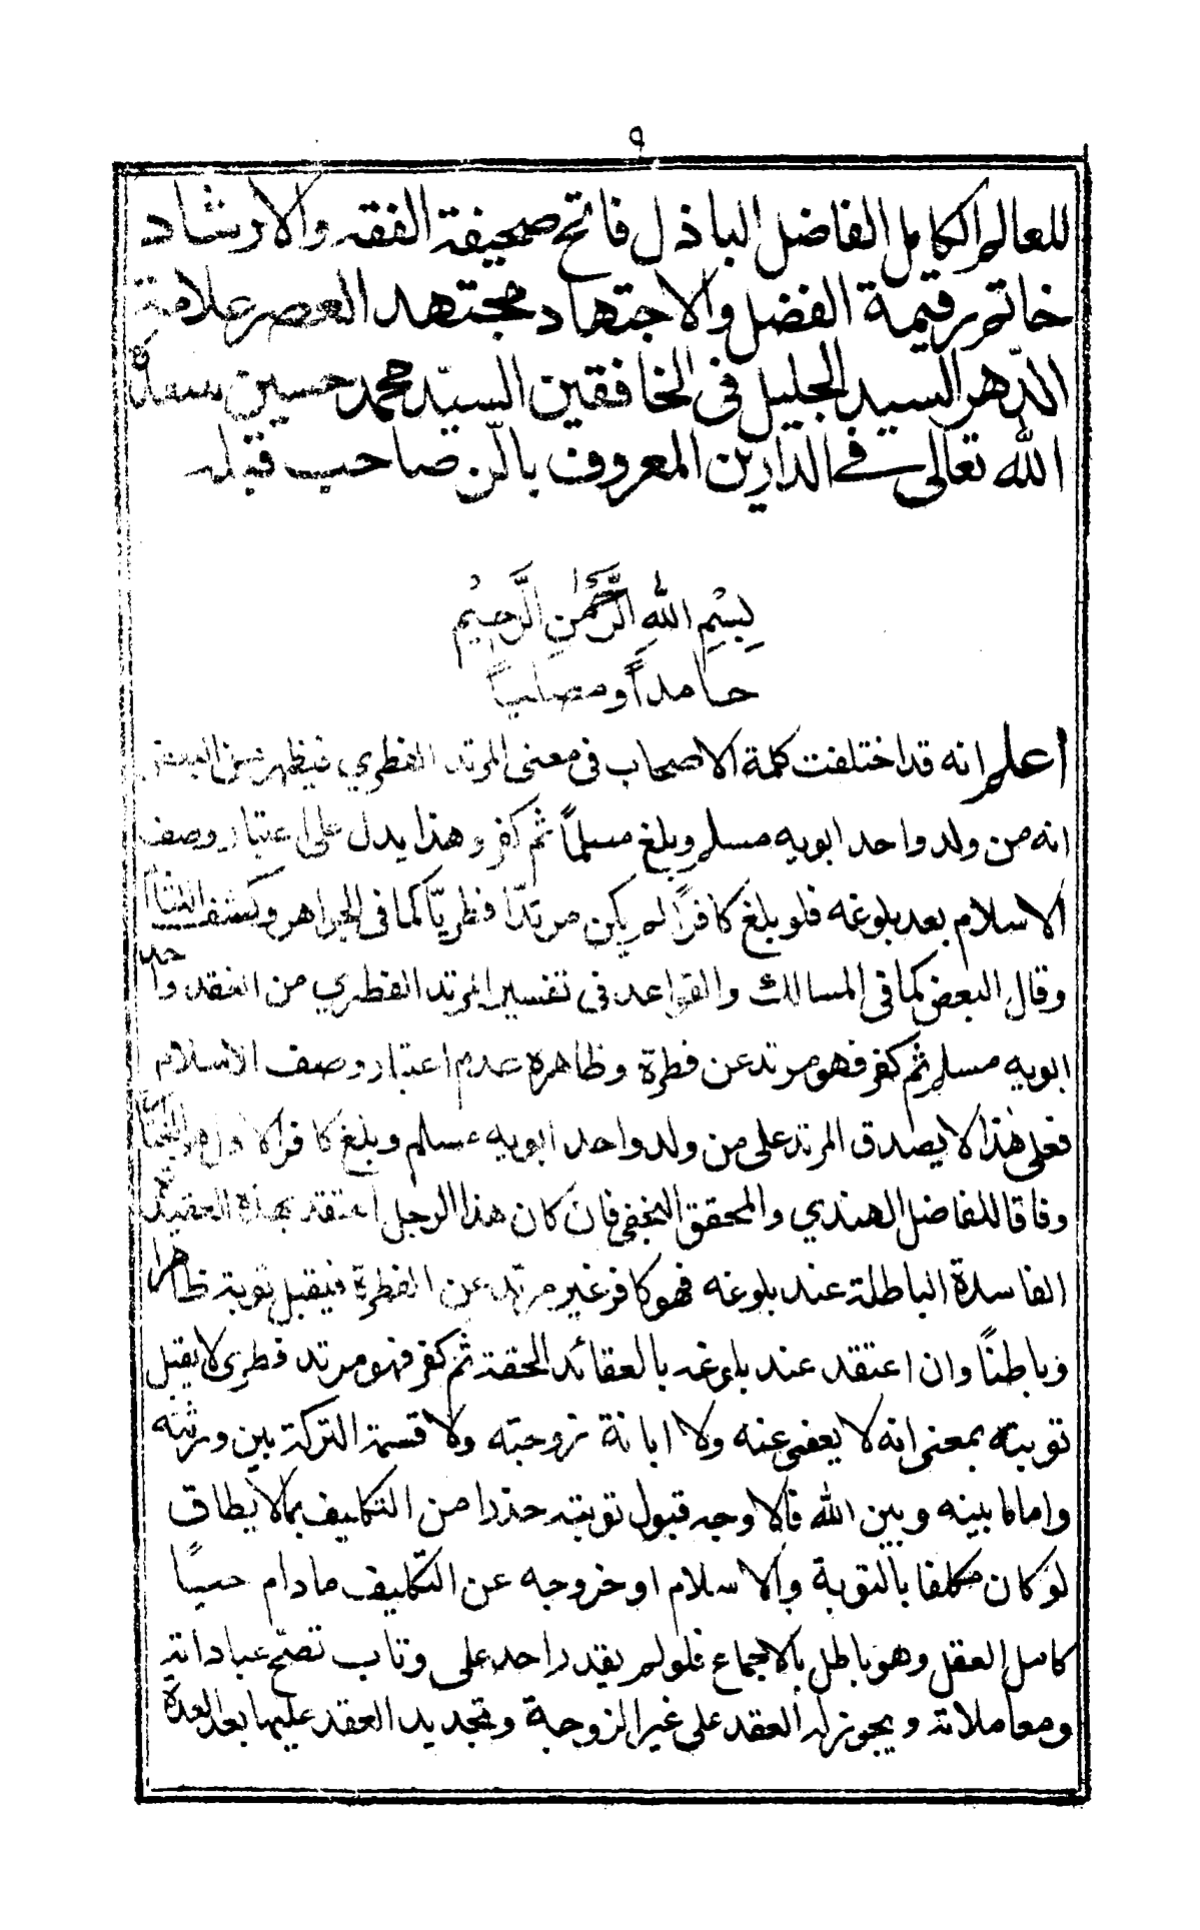 ٩
للعالم الكامل الفاضل الباذل فاتح صحيفة الفقه والارشاد
خاتم رقيمة الفضل والاجتهاد مجتهد العصر علامة
الدّهر السيد الجليل في الخافقين السيّد محمد حسين سعده
الله تعالى في الدارين المعروف بالّن صاحب قبله
بِسْمِ اللهِ الرَّحْمٰنِ الرَّحِيْمِ
حامداً ومصلياً
اعلم انه قد اختلفت كلمة الاصحاب في معنى المرتد الفطري فيظهر من البعض
انه من ولد واحد ابويه مسلم وبلغ مسلماً ثم كفر وهذا يدل على اعتبار وصف
الاسلام بعد بلوغه فلو بلغ كافراً لم يكن مرتدّا فطريّا كما في الجواهر وكشف اللثام
وقال البعض كما في المسالك والقواعد في تفسير المرتد الفطري من انعقد واحد
ابويه مسلم ثم كفر فهو مرتد عن فطرة وظاهره عدم اعتبار وصف الاسلام
فعلى هذا لا يصدق المرتد على من ولد واحد ابويه مسلم وبلغ كافرا والاول هو المختار
وفاقا للفاضل الهندي والمحقق النجفي فان كان هذا الرجل اعتقد بهذه العقيدة
الفاسدة الباطلة عند بلوغه فهو كافر غير مرتد عن الفطرة فيقبل توبته ظاهرا
وباطناً وان اعتقد عند بلوغه بالعقائد الحقة ثم كفر فهو مرتد فطري لا يقبل
توبته بمعنى انه لا يعفى عنه ولا ابانة زوجته ولا قسمة التركة بين ورثته
واما ما بينه وبين الله فالاوجه قبول توبته حذرا من التكليف بما لا يطاق
لو كان مكلفا بالتوبة والاسلام او خروجه عن التكليف مادام حيًا
كامل العقل وهو باطل بالاجماع فلو لم يقدر احد على وتاب تصح عباداته
ومعاملاته ويجوز له العقد على غير الزوجة وتجديد العقد عليها بعد العدة